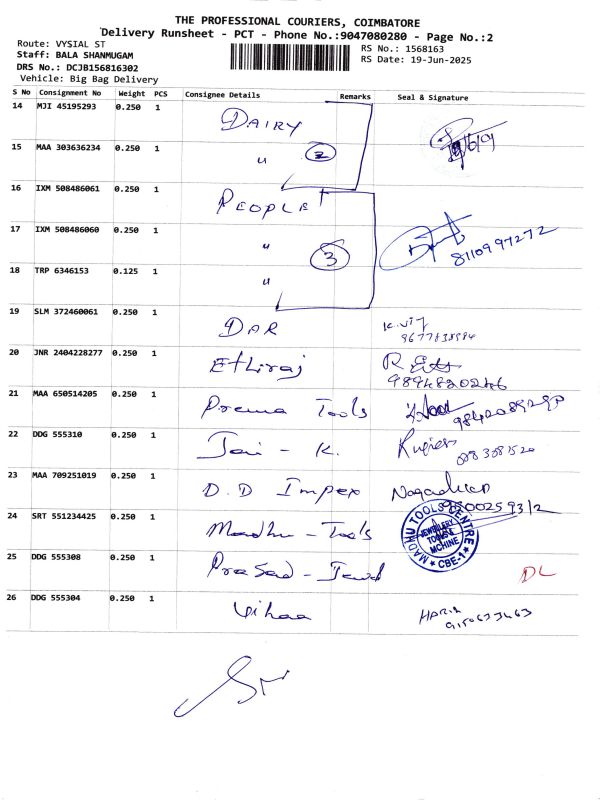 THE PROFESSIONAL COURIERS, COIMBATORE
Delivery Runsheet - PCT - Phone No.:9047080280 - Page No.:2
Route: VYSIAL ST RS No.: 1568163
Staff: BALA SHANMUGAM RS Date: 19-Jun-2025
DRS No.: DCJB156816302
Vehicle: Big Bag Delivery
S No Consignment No Weight PCS Consignee Details Remarks Seal & Signature
14 MJI 45195293 0.250 1 DAIRY
15 MAA 303636234 0.250 1 " 2
16 IXM 508486061 0.250 1 PEOPLE
17 IXM 508486060 0.250 1 " 3 8110997272
18 TRP 6346153 0.125 1 "
19 SLM 372460061 0.250 1 DAR
20 JNR 2404228277 0.250 1 Ethiraj 9894820246
21 MAA 650514205 0.250 1 Prema Tools
22 DDG 555310 0.250 1 Jai - K.
23 MAA 709251019 0.250 1 D.D Impex
24 SRT 551234425 0.250 1 Madhu - Tools MADHU TOOLS CENTRE JEWELLERY TOOLS & MCHINE CBE-1
25 DDG 555308 0.250 1 Prasad - Jewel DL
26 DDG 555304 0.250 1 Vihaa HARISH